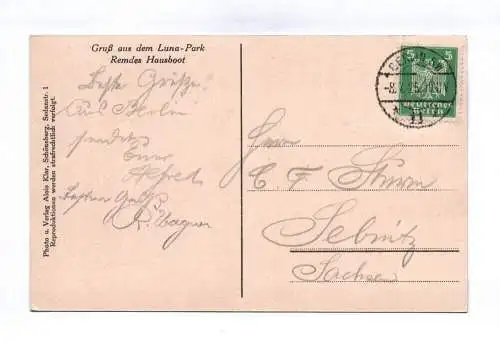 Gruß aus dem Luna-Park
Remdes Hausboot
Beste Grüße
Aus Berlin
sendet
euer
Alfred
Besten Gruß
R. Wagner
Photo u. Verlag Alois Klar, Schöneberg, Sedanstr. 1
Reproduktionen werden strafrechtlich verfolgt.
5 5
BERLIN
-8.
11
Deutsches
Reich
Herrn
C. F. Sturm
Sebnitz
Sachsen